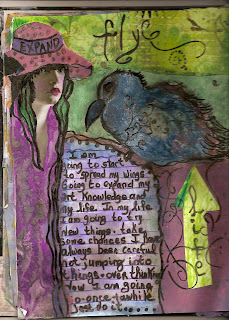 EXPAND
fly
I am
going to start
to spread my wings
Going to expand my
art Knowledge and
my life. In my life
I am going to try
new things. take
some chances I have
always been careful
not jumping into
things. over thinking
Now I am going
to once-awhile
Just do it....